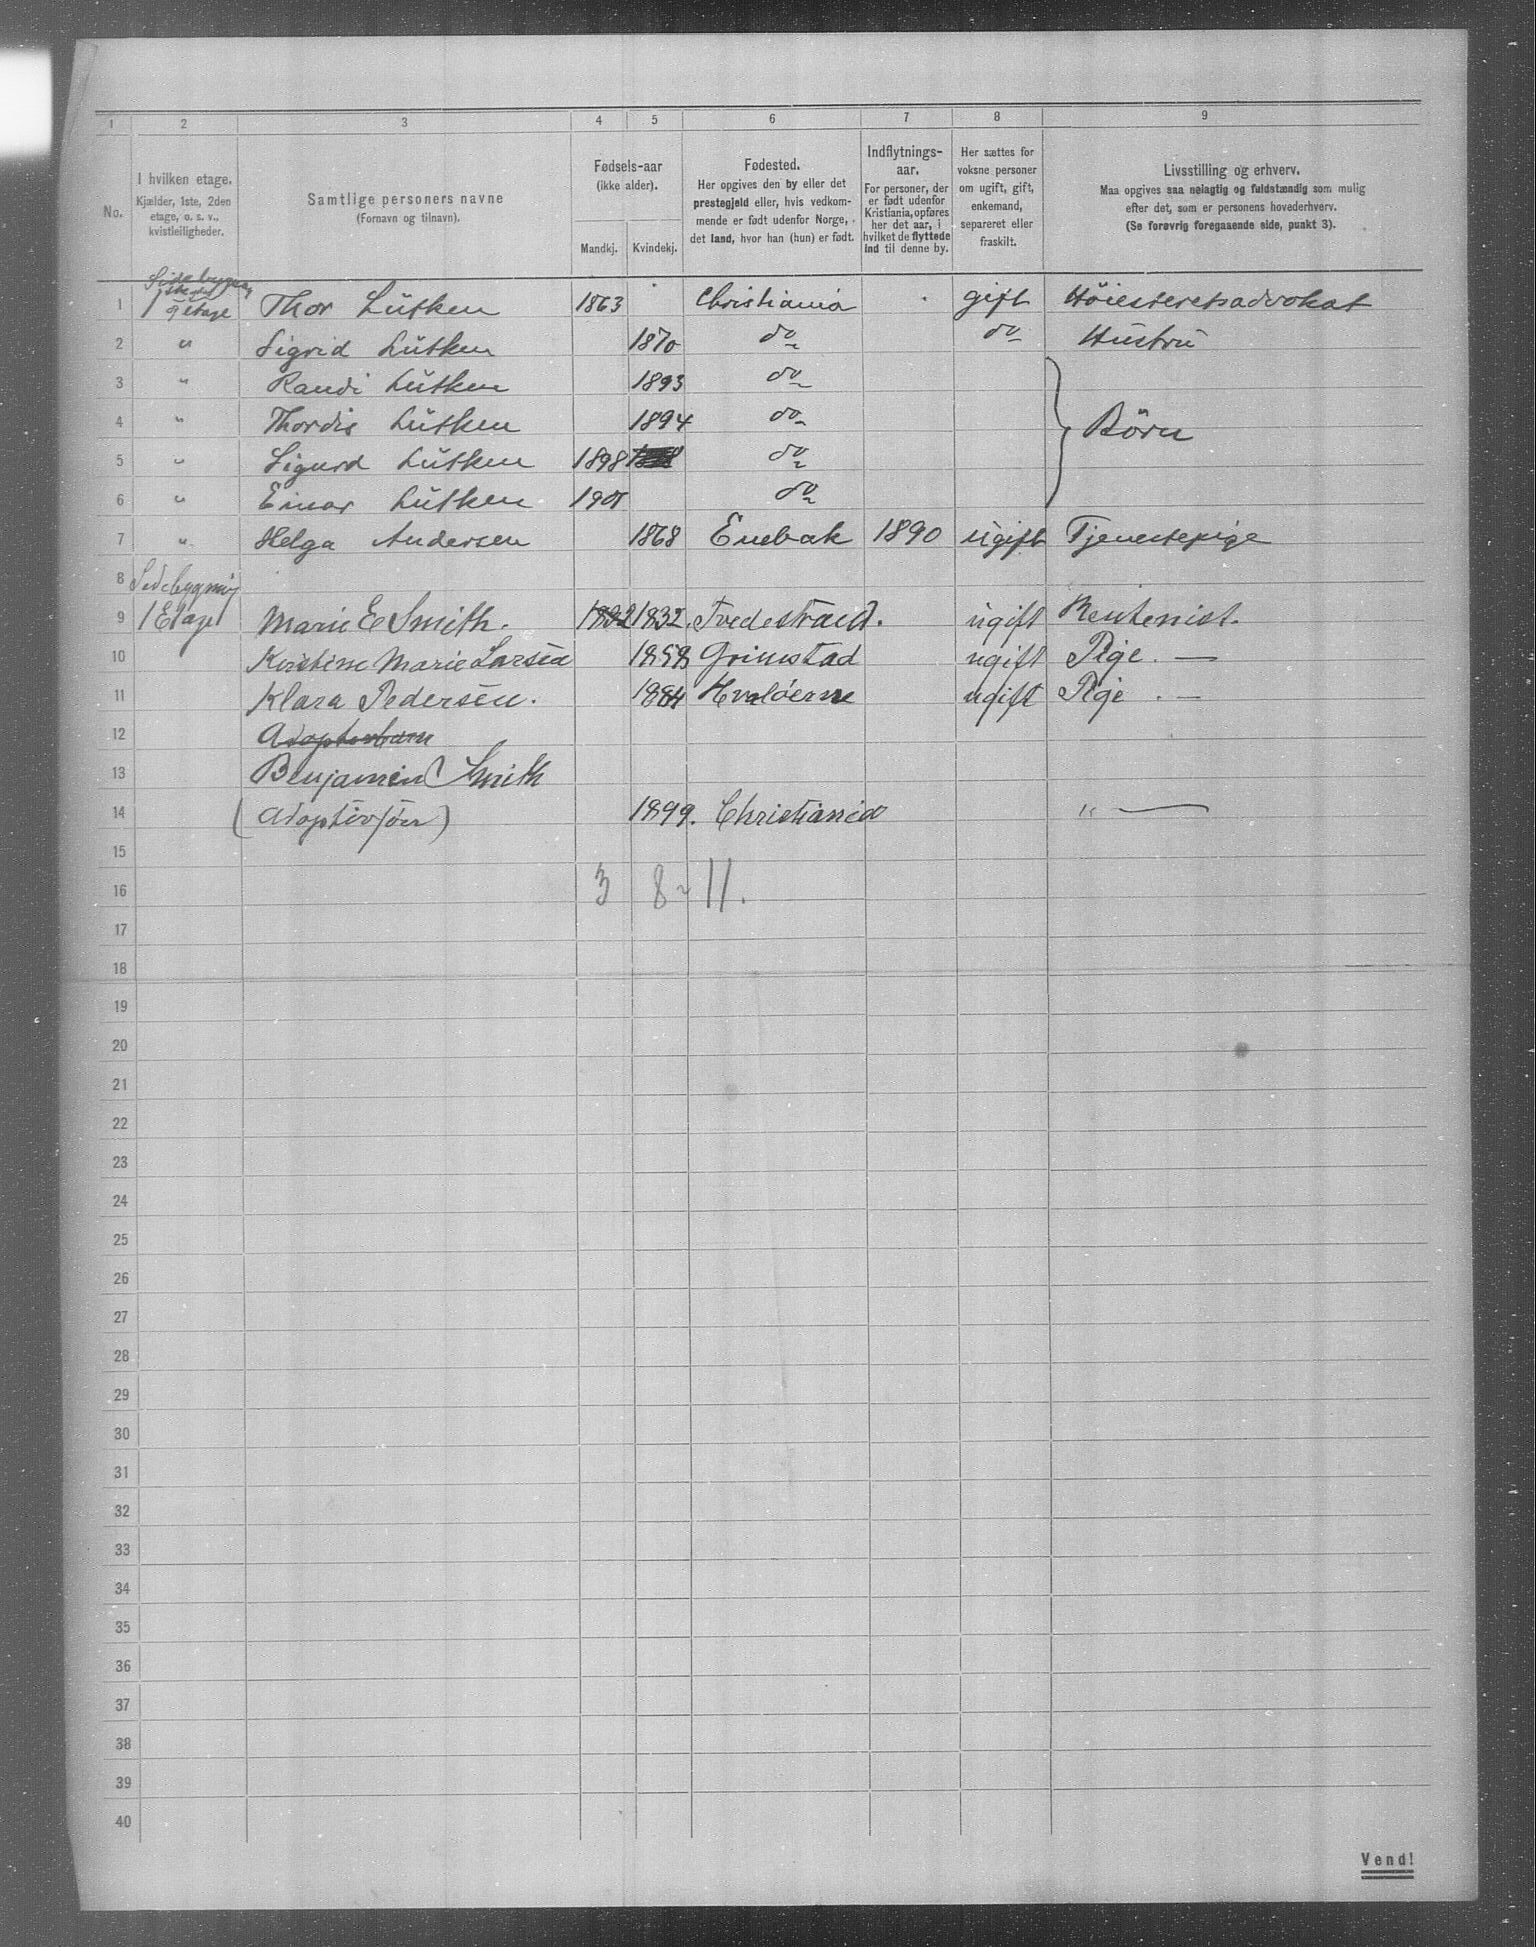 1 2 3 4 5 6 7 8 9
No.
I hvilken etage.
Kjælder, 1ste, 2den
etage, o. s. v.,
kvistleiligheder.
Samtlige personers navne
(Fornavn og tilnavn).
Fødsels-aar
(ikke alder).
Mandkj. Kvindekj.
Fødested.
Her opgives den by eller det
prestegjeld eller, hvis vedkom-
mende er født udenfor Norge,
det land, hvor han (hun) er født.
Indflytnings-
aar.
For personer, der
er født udenfor
Kristiania, opføres
her det aar, i
hvilket de flyttede
ind til denne by.
Her sættes for
voksne personer
om ugift, gift,
enkemand,
separeret eller
fraskilt.
Livsstilling og erhverv.
Maa opgives saa nøiagtig og fuldstændig som mulig
efter det, som er personens hovederhverv.
(Se forøvrig foregaaende side, punkt 3).
Sidebygning
1 etage Thor Lütken 1863 Christiania gift Höiesteretsadvokat
2 " Sigrid Lütken 1870 do do Hustru
3 " Randi Lütken 1893 do
4 " Thordis Lütken 1894 do Börn
5 " Sigurd Lütken 1898 do
6 " Einar Lütken 1901 do
7 " Helga Andersen 1868 Enebak 1890 ugift Tjenestepige
8 Sidebygning
9 1 Etage Marie E Smith. 1832 1832. Tvedestrand. ugift Rentenist.
10 Kirstine Marie Larsen 1858 Grimstad ugift Pige. —
11 Klara Pedersen. 1884 Hvaløerne ugift Pige . —
12 Adoptivbarn
13 Benjamin Smith
14 (Adoptivsøn) 1899. Christiania " —
15
16 3 8 - 11.
17
18
19
20
21
22
23
24
25
26
27
28
29
30
31
32
33
34
35
36
37
38
39
40
Vend!